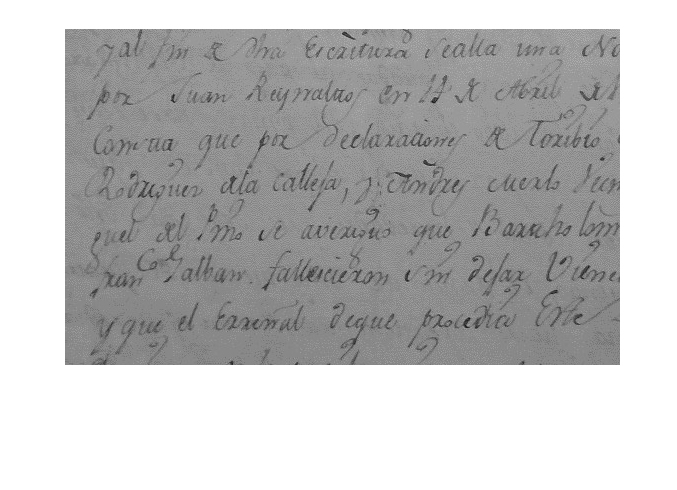 y al fin de dha Escritura se alla una No
por Juan Reynaltos en 14 de Abril de
Consta que por declaraciones de Toribio
Rodriguez de la Calleja, y Andres Merlo
quel del Pino se averiguo que Bartholom
Fran Galban fallecieron sin dejar Viene
y que el Censual de que procedia Este